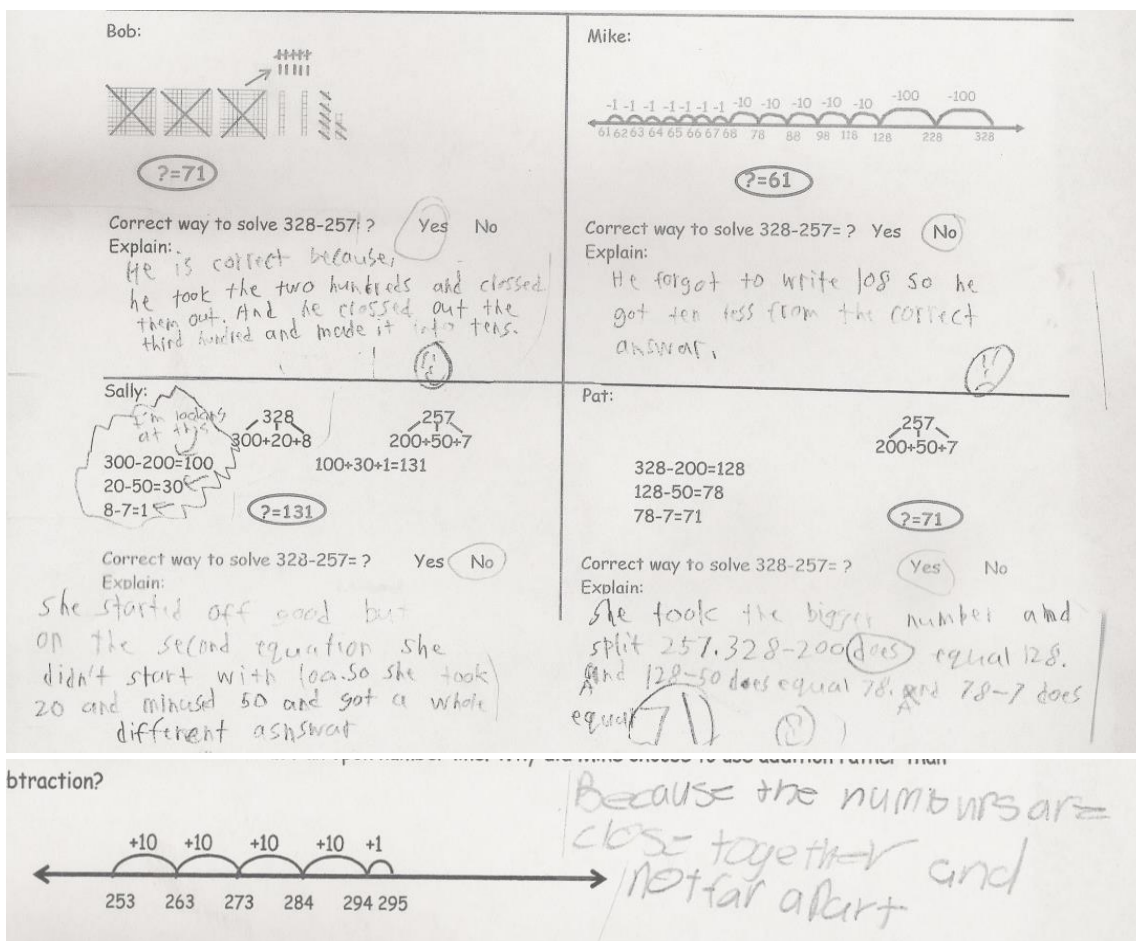 Bob:
?=71
Correct way to solve 328-257= ? Yes No
Explain:
He is correct because,
he took the two hundreds and clossed
them out. And he clossed out the
third hundred and made it into tens.
Mike:
-1 -1 -1 -1 -1 -1 -1 -10 -10 -10 -10 -10 -100 -100
61 62 63 64 65 66 67 68 78 88 98 118 128 228 328
?=61
Correct way to solve 328-257= ? Yes No
Explain:
He forgot to write 108 so he
got ten less from the correct
answar.
Sally:
I'm looking
at this
328
300+20+8
257
200+50+7
300-200=100
20-50=30
8-7=1
100+30+1=131
?=131
Correct way to solve 328-257= ? Yes No
Explain:
She started off good but
on the second equation she
didn't start with 100.So she took
20 and minused 50 and got a whole
different ashswar
Pat:
257
200+50+7
328-200=128
128-50=78
78-7=71
?=71
Correct way to solve 328-257= ? Yes No
Explain:
She took the bigger number and
split 257.328-200 does equal 128.
And 128-50 does equal 78. And 78-7 does
equal 71
btraction?
+10 +10 +10 +10 +1
253 263 273 284 294 295
Because the numburs are
close together and
not far apart